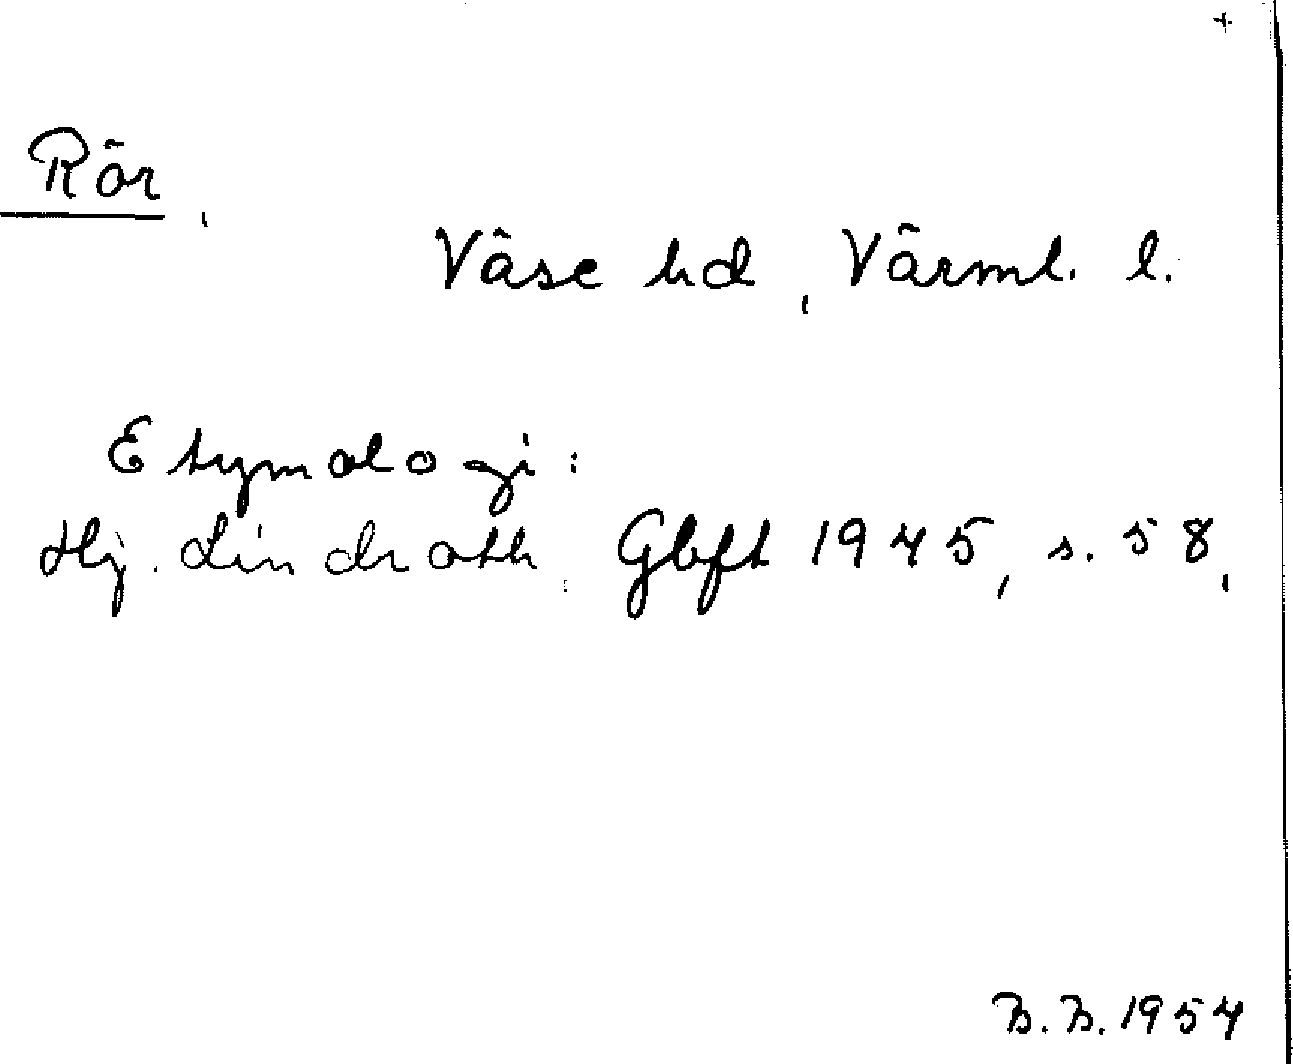 +
Rör,
Väse hd, Värml. l.
Etymologi:
Hj. Lindroth, Gbft 1945, s. 58,
B. B. 1954